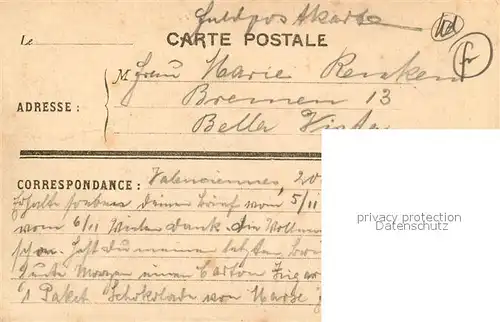 Feldpostkarte
Le
CARTE POSTALE
M Frau Marie Renken
ADRESSE :
Bremen 13
Bella Vista
CORRESPONDANCE : Valenciennes, 20
Erhalte soeben deinen Brief vom 5/11
vom 6/11 Vielen Dank. Die
schon. Hast du meinen letzten
Heute Morgen einen Carton
1 Paket Schokolade von
privacy protection
Datenschutz